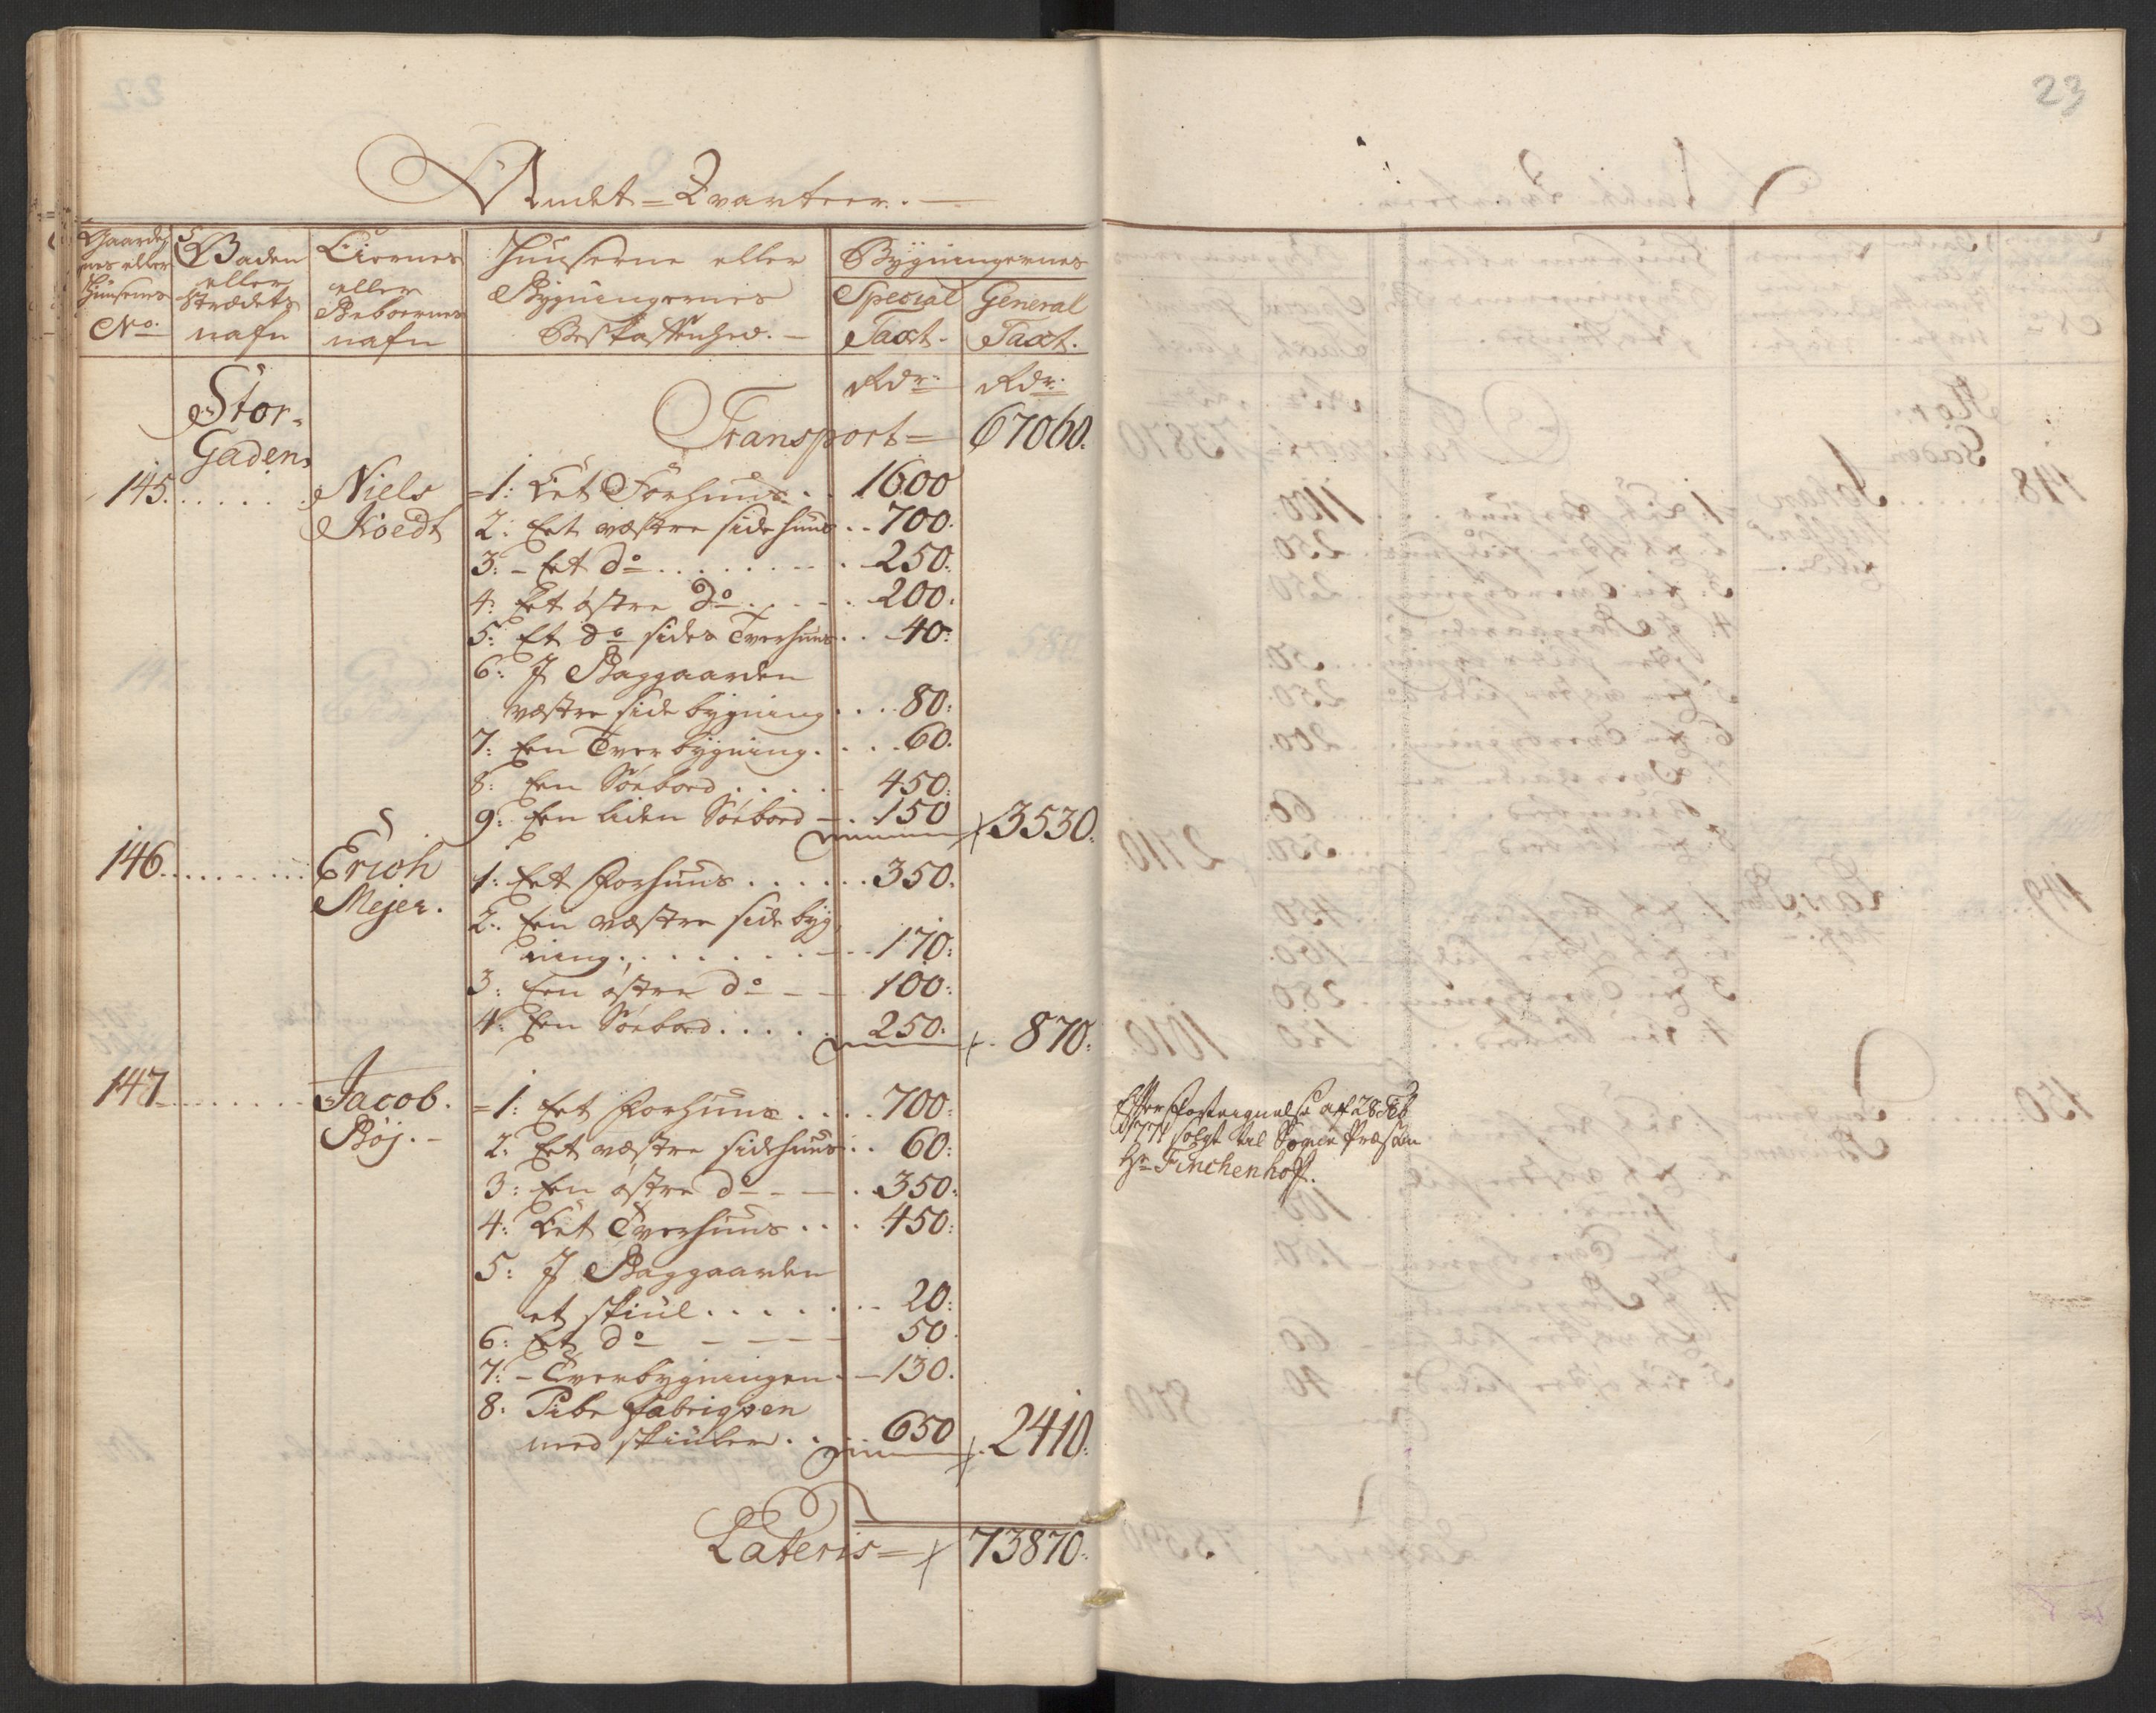 23
Andet=Qvarteer.
Gaarde,
nes eller
Huusenes
No.
Gaden
eller
Strædets
nafn
Eiernes
eller
Beboernes
nafn
Huuserne eller
Bygningernes
Beskaffenhed. -
Bygningernes
Special
Taxt.
General
Taxt.
Stor-
Gaden,
Rdr: Rdr:
Transport= 67060.
145. . . . . . . Niels =1: Eet Forhuus. . . 1600
Koedt 2: Eet væstre side huus . . 700.
3: - Eet do . . . . . . . 250.
4: Eet østre do . . - - . 200.
5: Et do sides Tverhuus . . 40:
6: J Baggaarden
væstre side bygning . . . 80:
7: Een Tver bygning . . . . 60.
8: Een Søebod . . . . . 450:
9: Een liden Søebod - . 150 3530.
146. . . . . . . . . Erich 1: Eet Forhuus . . . . . . 350.
Mejer. 2: Een væstre side byg
ning . . . . . . . - - . 170:
3: Een østre do - - 100:
4: Een Søebod . . . . . 250. 870:
147. . . . . . . . Jacob. =1: Eet Forhuus . . . . 700:
Bøj. - 2: Eet væstre sidehuus . . 60:
3: Een østre do - - - . 350:
4: Eet Tverhuus . . . 450:
5: J Baggaarden
et skiul . . . . . . - 20:
6: Et do - - - - - 50.
7: - Tverbygningen . - 130.
8: Pibe Fabriqven
med skiuler . . 650 2410:
Lateris= 73870.
Efter Posteignelse aff 28 Feb
1771 solgt til Sogne Præsten
Hr Finchenhoff.